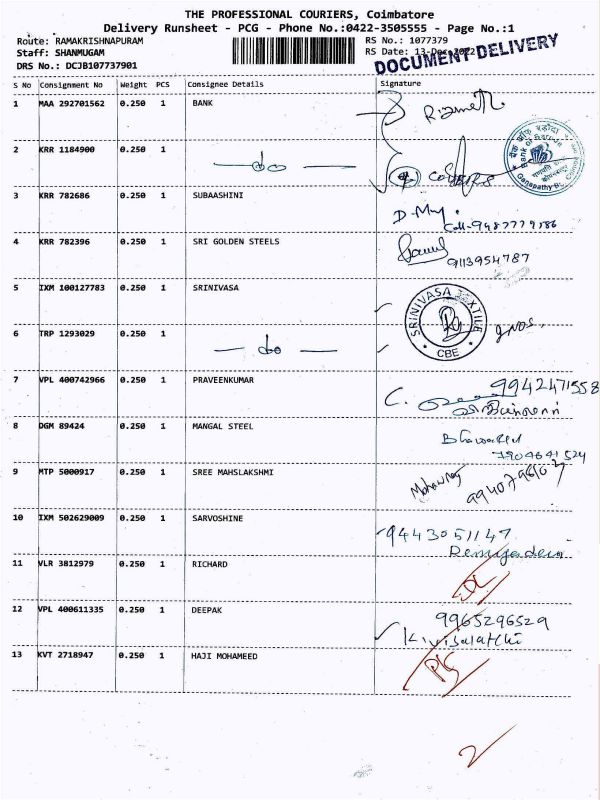 THE PROFESSIONAL COURIERS, Coimbatore
Delivery Runsheet - PCG - Phone No.:0422-3505555 - Page No.:1
Route: RAMAKRISHNAPURAM RS No.: 1077379
Staff: SHANMUGAM RS Date: 13-Dec-2022
DOCUMENT DELIVERY
DRS No.: DCJB107737901
S No Consignment No Weight PCS Consignee Details Signature
1 MAA 292701562 0.250 1 BANK
2 KRR 1184900 0.250 1 — do —
Bank of Baroda
3 KRR 782686 0.250 1 SUBAASHINI
Cell-9487779186
4 KRR 782396 0.250 1 SRI GOLDEN STEELS
9113954787
5 IXM 100127783 0.250 1 SRINIVASA
SRINIVASA TEXTILE
CBE
2 NOS.
6 TRP 1293029 0.250 1 — do —
7 VPL 400742966 0.250 1 PRAVEENKUMAR 9942471558
8 DGM 89424 0.250 1 MANGAL STEEL
7904641524
9 MTP 5000917 0.250 1 SREE MAHSLAKSHMI
10 IXM 502629009 0.250 1 SARVOSHINE 9443051147
11 VLR 3812979 0.250 1 RICHARD
12 VPL 400611335 0.250 1 DEEPAK 9965296529
K. Visalatchi
13 KVT 2718947 0.250 1 HAJI MOHAMEED
2